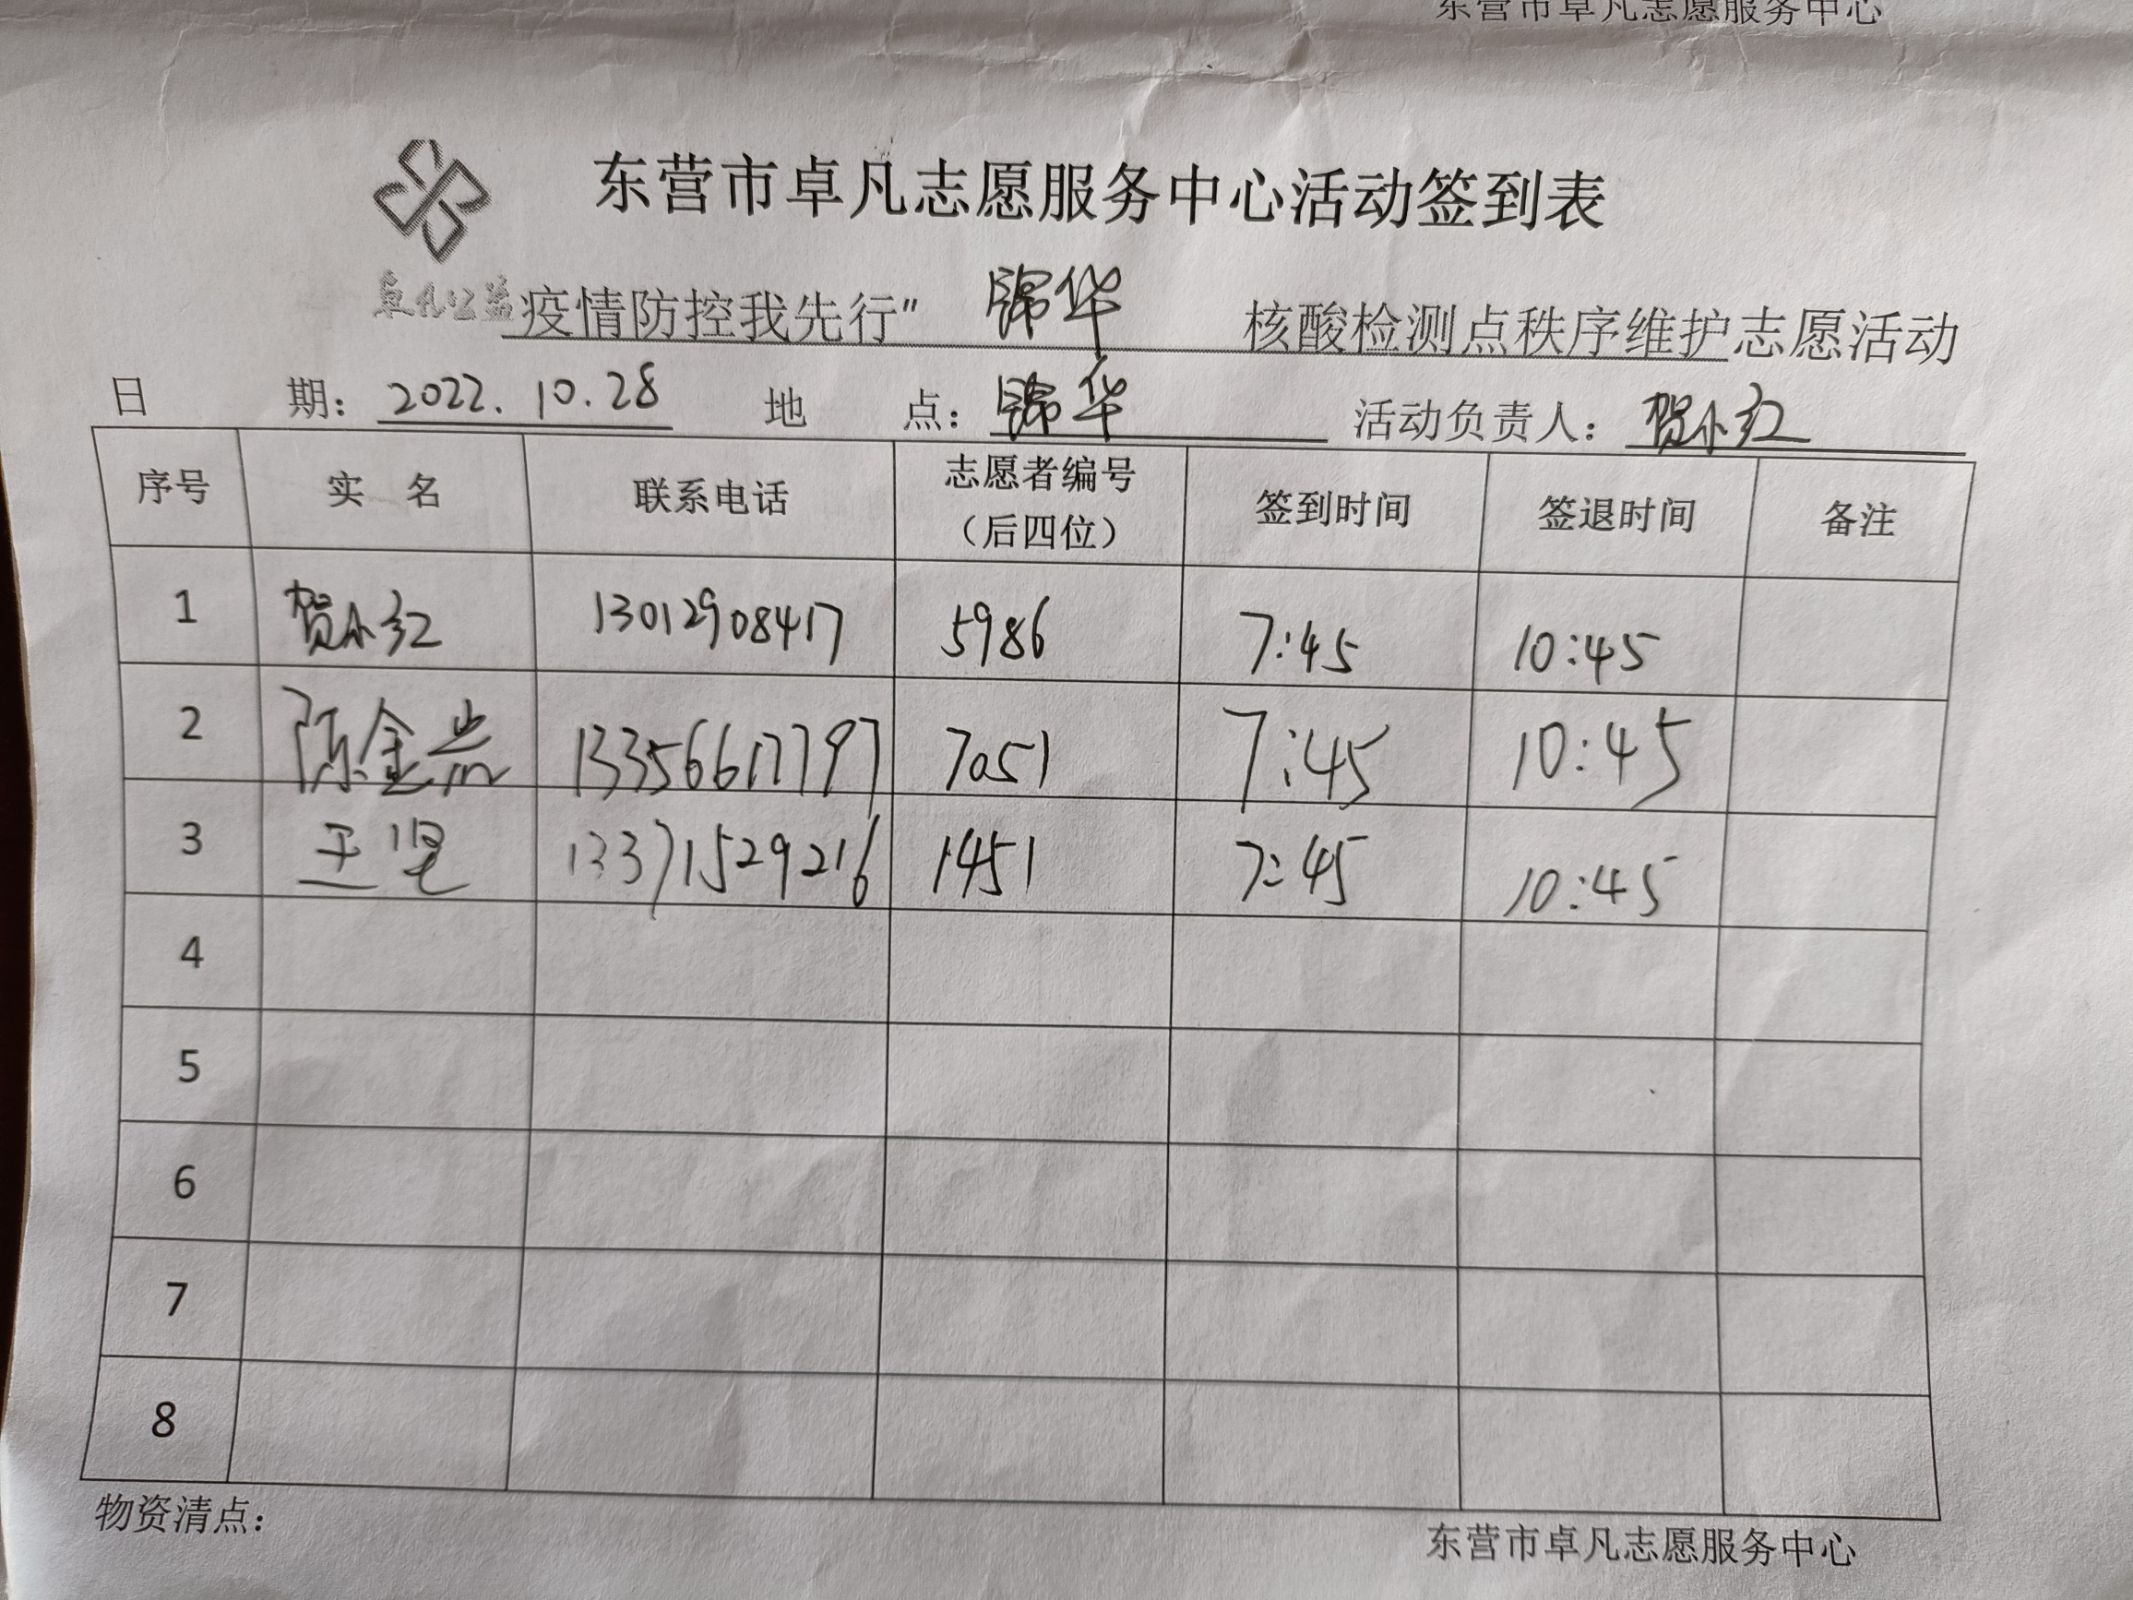 东营市卓凡志愿服务中心
东营市卓凡志愿服务中心活动签到表
卓凡公益
疫情防控我先行” 锦华 核酸检测点秩序维护志愿活动
日 期： 2022.10.28 地 点： 锦华 活动负责人： 贺小红
序号 实 名 联系电话 志愿者编号 签到时间 签退时间 备注
（后四位）
1 贺小红 13012908417 5986 7:45 10:45
2 陈金 7051 7:45 10:45
3 王坚 13371529216 1451 7:45 10:45
4
5
6
7
8
物资清点：
东营市卓凡志愿服务中心